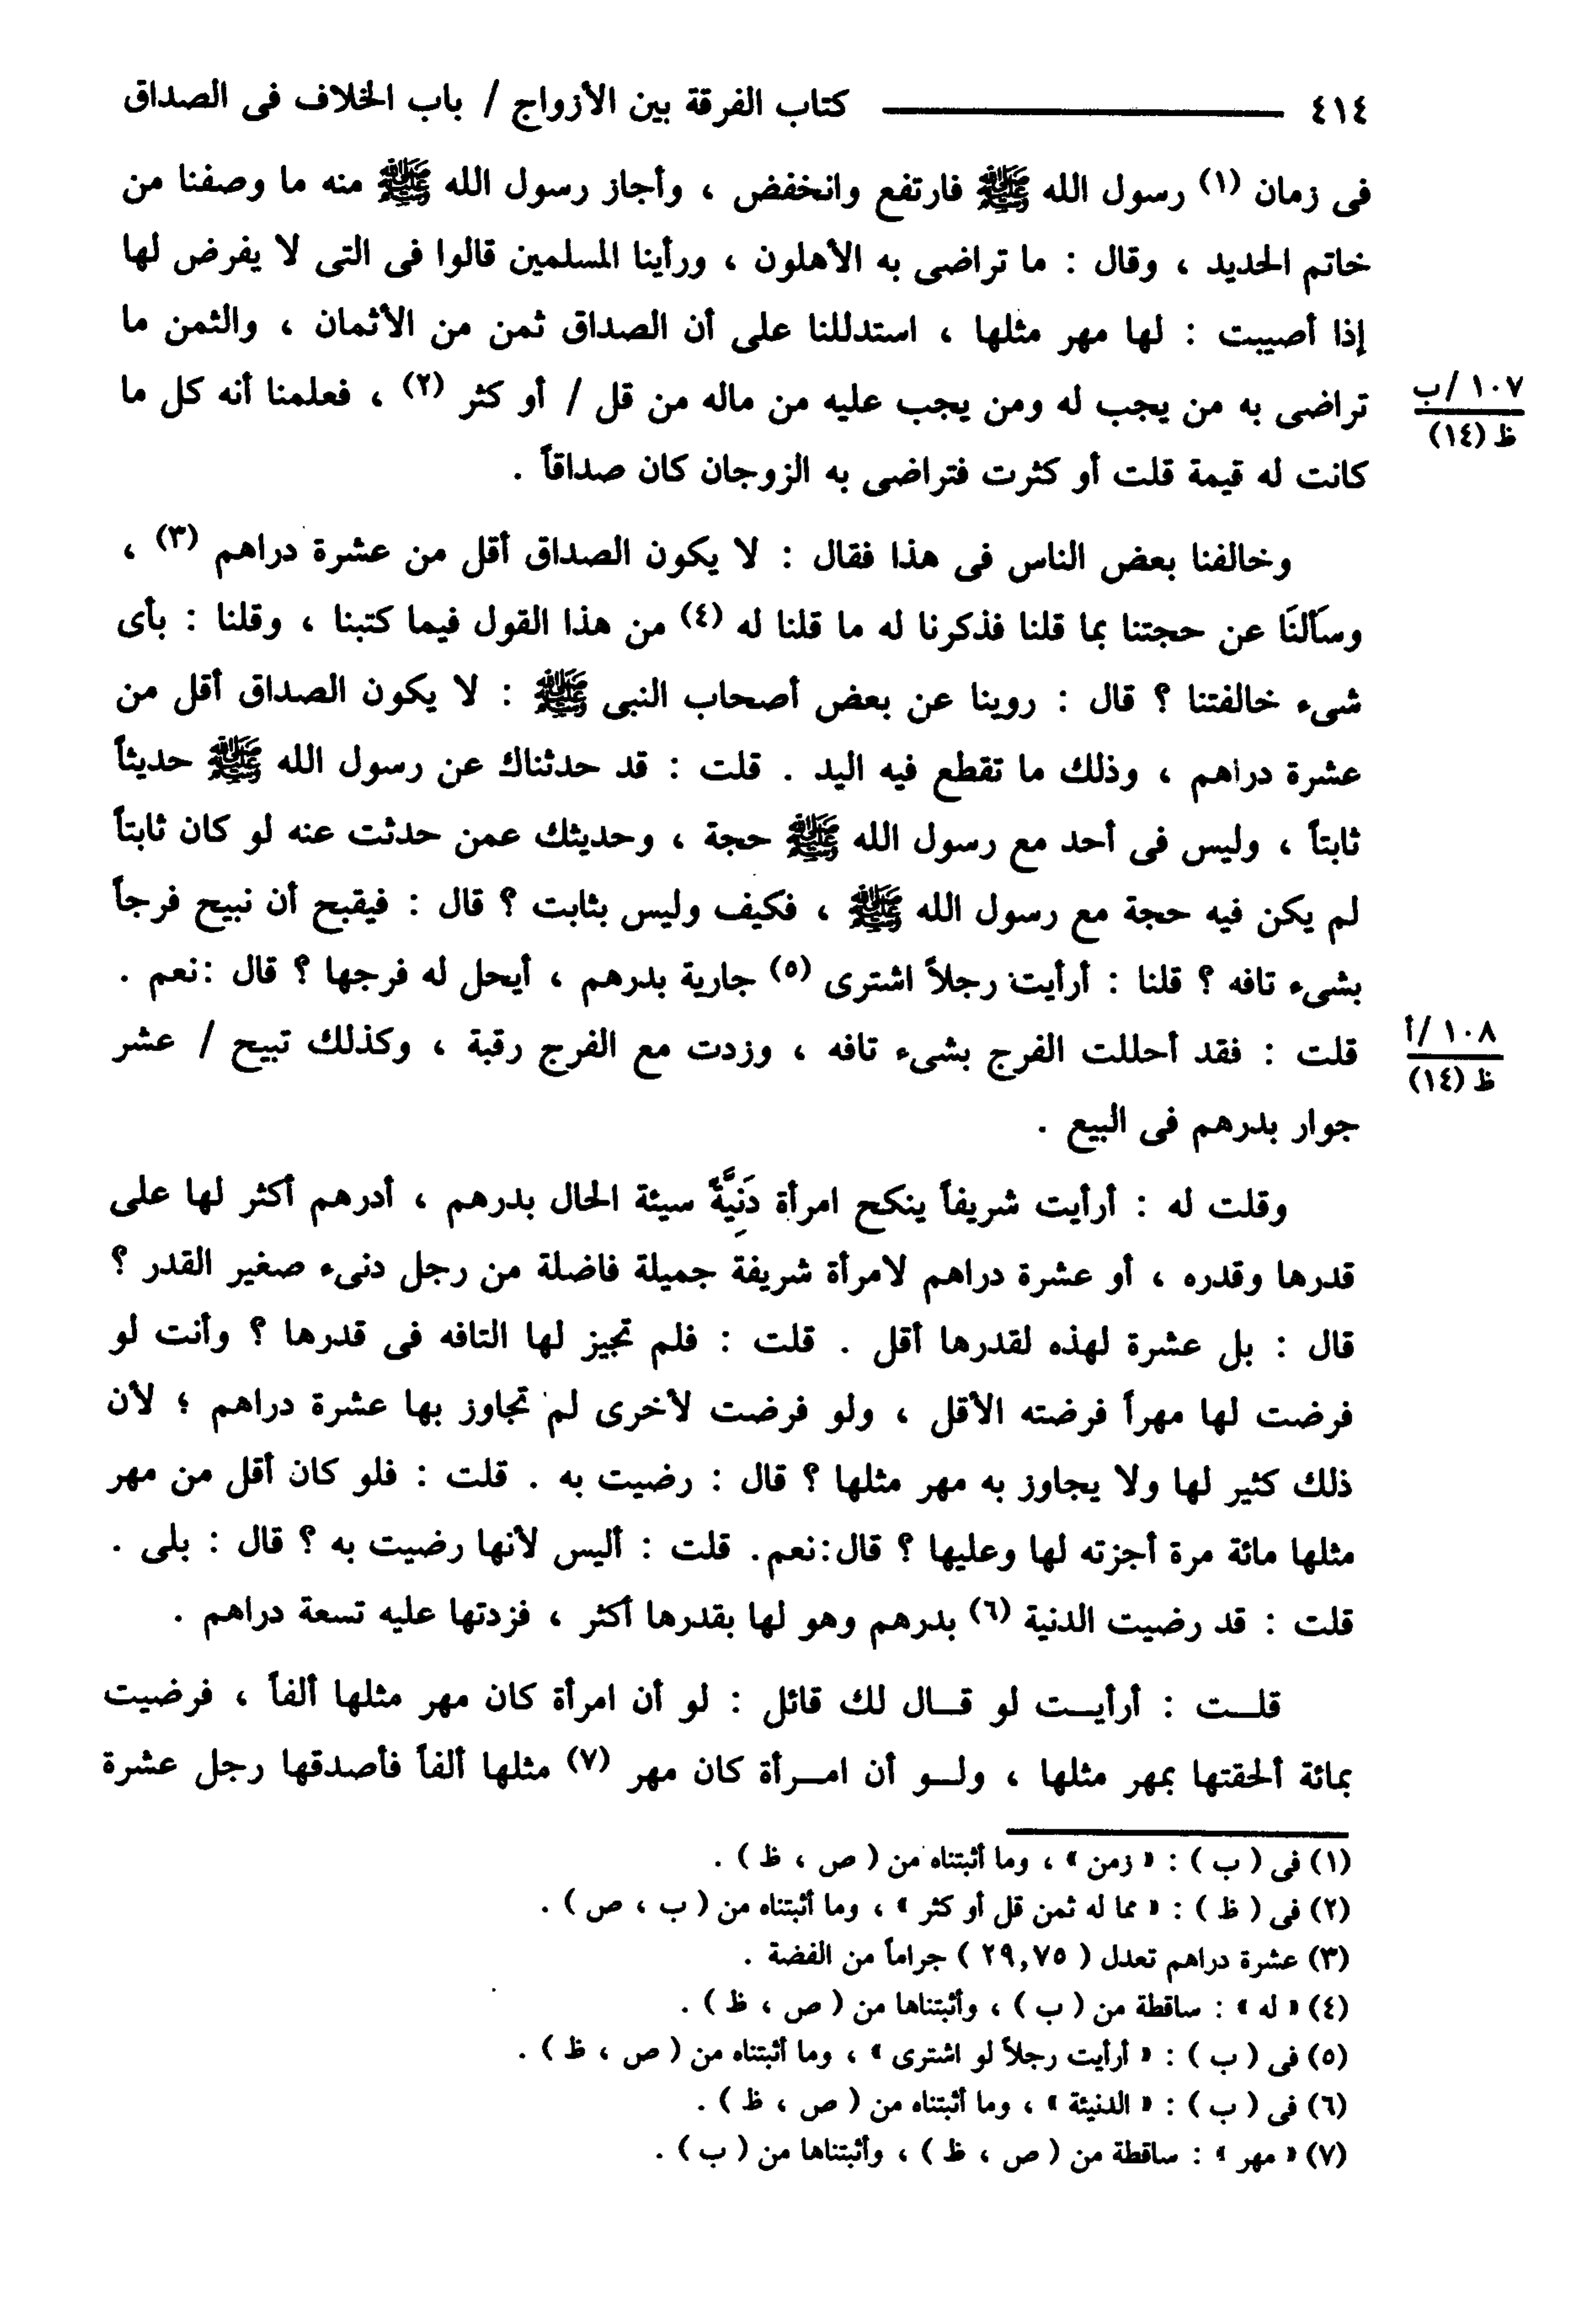 ٤١٤ ــــــــــــ كتاب الفرقة بين الأزواج / باب الخلاف فى الصداق
فى زمان (١) رسول الله ﷺ فارتفع وانخفض ، وأجاز رسول الله ﷺ منه ما وصفنا من
خاتم الحديد ، وقال : ما تراضى به الأهلون ، ورأينا المسلمين قالوا فى التى لا يفرض لها
إذا أصيبت : لها مهر مثلها ، استدللنا على أن الصداق ثمن من الأثمان ، والثمن ما
تراضى به من يجب له ومن يجب عليه من ماله من قل / أو كثر (٢) ، فعلمنا أنه كل ما
١٠٧ /ب
ظ (١٤)
كانت له قيمة قلت أو كثرت فتراضى به الزوجان كان صداقاً .
وخالفنا بعض الناس فى هذا فقال : لا يكون الصداق أقل من عشرة دراهم (٣) ،
وسَألنَا عن حجتنا بما قلنا فذكرنا له ما قلنا له (٤) من هذا القول فيما كتبنا ، وقلنا : بأى
شىء خالفتنا ؟ قال : روينا عن بعض أصحاب النبى ﷺ : لا يكون الصداق أقل من
عشرة دراهم ، وذلك ما تقطع فيه اليد . قلت : قد حدثناك عن رسول الله ﷺ حديثاً
ثابتاً ، وليس فى أحد مع رسول الله ﷺ حجة ، وحديثك عمن حدثت عنه لو كان ثابتاً
لم يكن فيه حجة مع رسول الله ﷺ ، فكيف وليس بثابت ؟ قال : فيقبح أن نبيح فرجاً
بشىء تافه ؟ قلنا : أرأيت رجلاً اشترى (٥) جارية بدرهم ، أيحل له فرجها ؟ قال :نعم .
قلت : فقد أحللت الفرج بشىء تافه ، وزدت مع الفرج رقبة ، وكذلك تبيح / عشر
١٠٨ /أ
ظ (١٤)
جوار بدرهم فى البيع .
وقلت له : أرأيت شريفاً ينكح امرأة دَنِيَّةً سيئة الحال بدرهم ، أدرهم أكثر لها على
قدرها وقدره ، أو عشرة دراهم لامرأة شريفة جميلة فاضلة من رجل دنىء صغير القدر ؟
قال : بل عشرة لهذه لقدرها أقل . قلت : فلم تجيز لها التافه فى قدرها ؟ وأنت لو
فرضت لها مهراً فرضته الأقل ، ولو فرضت لأخرى لم تجاوز بها عشرة دراهم ؛ لأن
ذلك كثير لها ولا يجاوز به مهر مثلها ؟ قال : رضيت به . قلت : فلو كان أقل من مهر
مثلها مائة مرة أجزته لها وعليها ؟ قال:نعم. قلت : أليس لأنها رضيت به ؟ قال : بلى .
قلت : قد رضيت الدنية (٦) بدرهم وهو لها بقدرها أكثر ، فزدتها عليه تسعة دراهم .
قلـــت : أرأيـــت لو قـــال لك قائل : لو أن امرأة كان مهر مثلها ألفاً ، فرضيت
بمائة ألحقتها بمهر مثلها ، ولـــو أن امـــرأة كان مهر (٧) مثلها ألفاً فأصدقها رجل عشرة
(١) فى ( ب ) : « زمن » ، وما أثبتناه من ( ص ، ظ ) .
(٢) فى ( ظ ) : « مما له ثمن قل أو كثر » ، وما أثبتناه من ( ب ، ص ) .
(٣) عشرة دراهم تعدل ( ٢٩,٧٥ ) جراماً من الفضة .
(٤) « له » : ساقطة من ( ب ) ، وأثبتناها من ( ص ، ظ ) .
(٥) فى ( ب ) : « أرأيت رجلاً لو اشترى » ، وما أثبتناه من ( ص ، ظ ) .
(٦) فى ( ب ) : « الدنيئة » ، وما أثبتناه من ( ص ، ظ ) .
(٧) « مهر » : ساقطة من ( ص ، ظ ) ، وأثبتناها من ( ب ) .